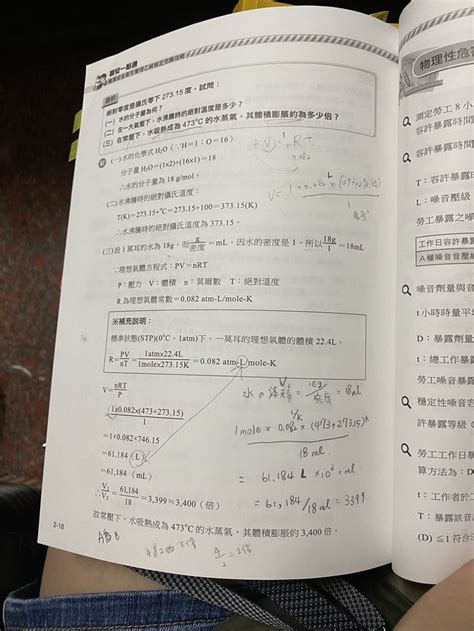 職安一點通
職業安全衛生管理乙級檢定完勝攻略
絕對零度是攝氏零下 273.15 度，試問：
(一) 水的分子量為何？
(二) 在一大氣壓下，水沸騰時的絕對溫度是多少？
(三) 在常壓下，水吸熱成為 473°C 的水蒸氣，其體積膨脹約為多少倍？
(一) 水的化學式 H₂O (∵H=1；O=16)
分子量 H₂O=(1x2)+(16x1)=18
∴水的分子量為 18 g/mol。
(二) 水沸騰時的絕對攝氏溫度：
T(K)=273.15+°C=273.15+100=373.15(K)
∴水沸騰時的絕對攝氏溫度為 373.15。
(三) 設 1 莫耳的水為 18g，而 g/密度 =mL，因水的密度是 1，所以 18g/1 =18mL
∵理想氣體方程式：PV=nRT
P：壓力 V：體積 n：莫爾數 T：絕對溫度
R 為理想氣體常數=0.082 atm-L/mole-K
※補充說明：
標準狀態(STP)(0°C、1atm)下，一莫耳的理想氣體的體積 22.4L。
R= PV/nT = 1atmx22.4L/1molex273.15K =0.082 atm-L/mole-K
V= nRT/P
= 1x0.082x(473+273.15)/1
=1×0.082×746.15
=61.184 (L)
=61,184 (mL)
∴ V₁/V₂ = 61,184/18 =3,399≒3,400（倍）
故常壓下，水吸熱成為 473°C 的水蒸氣，其體積膨脹約 3,400 倍。
2-18
nRT
0.082
水の体積 = 18g/密度 = 18ml
1mole x 0.082 x (473+273.15)K
18 ml
= 61,184
= 61,184/18 ml = 3399
物理性危害
測定勞工 8 小
容許暴露時間
容許暴露時
T：容許暴露時
L：噪音壓級
勞工暴露之噪
工作日容許暴
A權噪音音壓級
噪音劑量與音
t 小時時量平
t：總工作暴
勞工暴露噪音
穩定性噪音容
許暴露等級
勞工工作日暴
算方法為：D
t：工作者於
T：暴露該音
(D) ≦1 符合